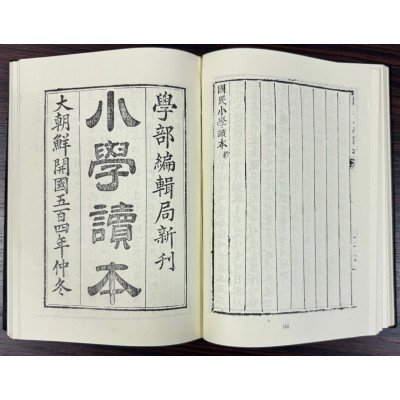 國民小學讀本終
學部編輯局新刊
小學讀本
大朝鮮開國五百四年仲冬